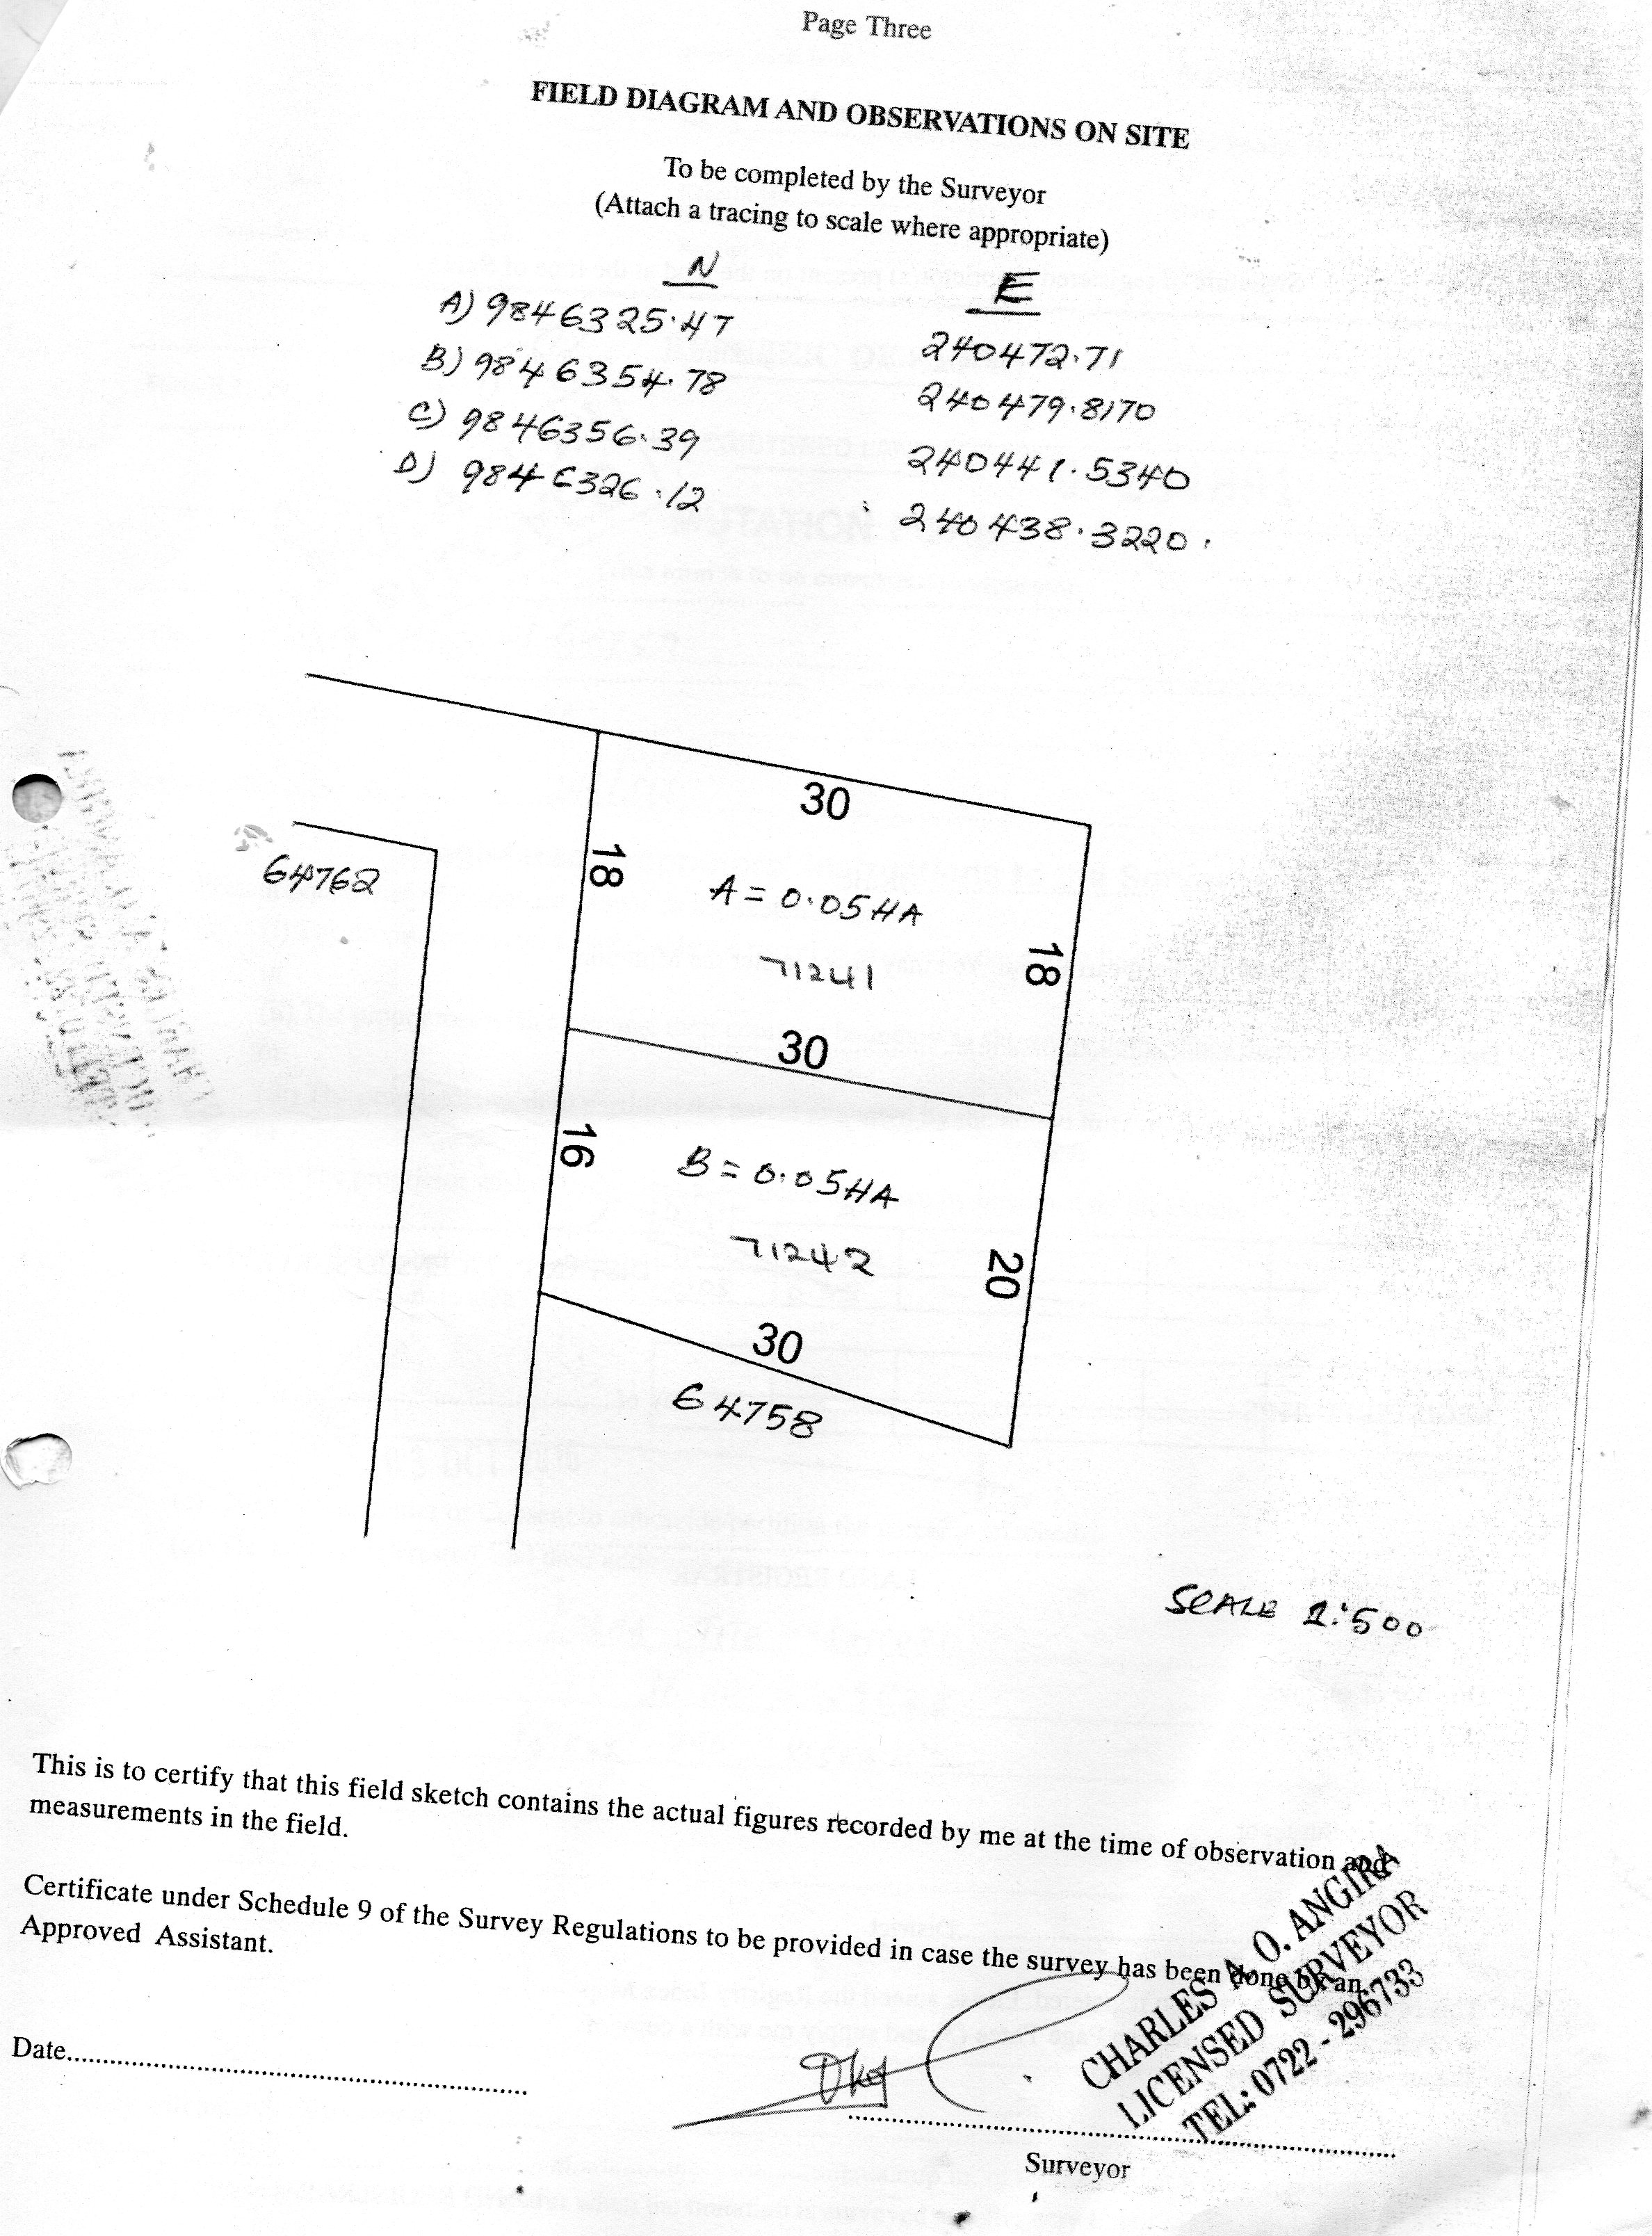 Page Three
FIELD DIAGRAM AND OBSERVATIONS ON SITE
To be completed by the Surveyor
(Attach a tracing to scale where appropriate)
N E
A) 9846325.47 240472.71
B) 9846354.78 240479.8170
C) 9846356.39 240441.5340
D) 9846326.12 240438.3220.
30
64762
18
A = 0.05HA
71241
18
30
16
B = 0.05HA
71242
20
30
64758
SCALE 1:500
This is to certify that this field sketch contains the actual figures recorded by me at the time of observation and
measurements in the field.
Certificate under Schedule 9 of the Survey Regulations to be provided in case the survey has been done by an
Approved Assistant.
CHARLES A. O. ANGIRA
LICENSED SURVEYOR
TEL: 0722 - 296733
Date
Surveyor